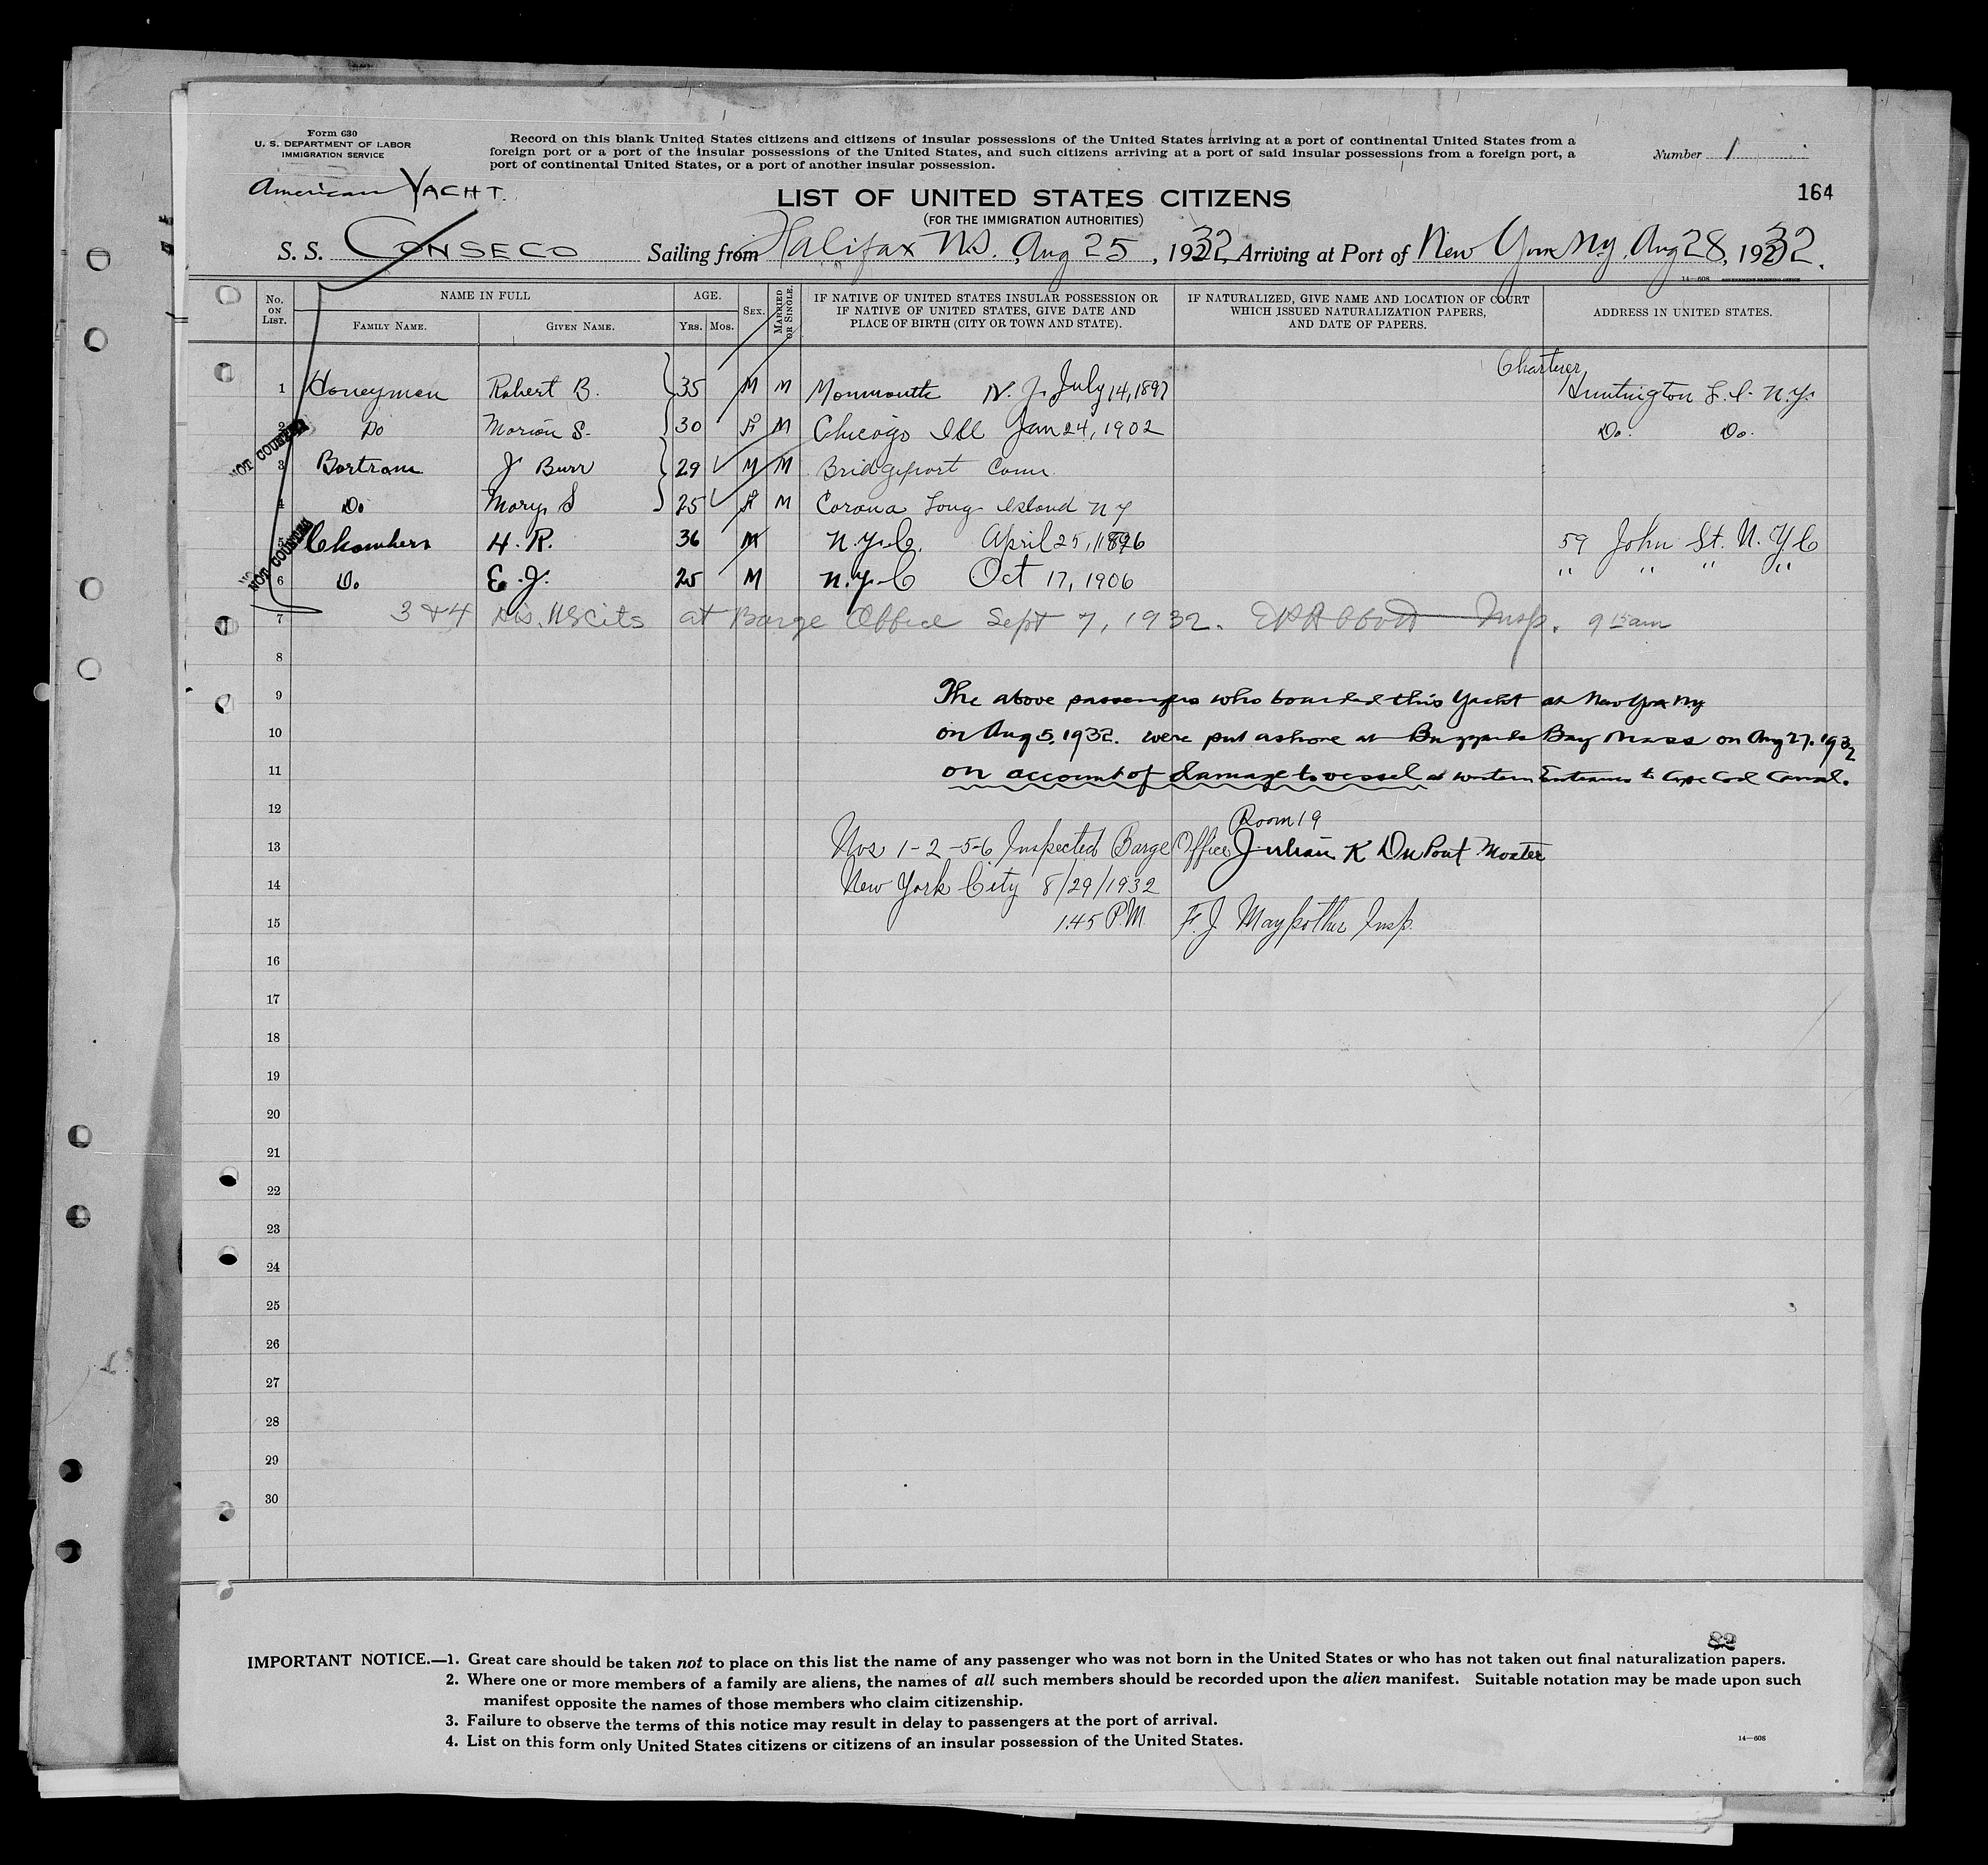 Form 630
U. S. DEPARTMENT OF LABOR
IMMIGRATION SERVICE
Record on this blank United States citizens and citizens of insular possessions of the United States arriving at a port of continental United States from a
foreign port or a port of the insular possessions of the United States, and such citizens arriving at a port of said insular possessions from a foreign port, a
port of continental United States, or a port of another insular possession.
Number 1
164
American YACHT.
LIST OF UNITED STATES CITIZENS
(FOR THE IMMIGRATION AUTHORITIES)
S. S. CONSECO Sailing from Halifax N.S., Aug 25, 1932, Arriving at Port of New York N.Y., Aug 28, 1932.
14—608
No. ON LIST. NAME IN FULL AGE. SEX. MARRIED OR SINGLE. IF NATIVE OF UNITED STATES INSULAR POSSESSION OR IF NATIVE OF UNITED STATES, GIVE DATE AND PLACE OF BIRTH (CITY OR TOWN AND STATE). IF NATURALIZED, GIVE NAME AND LOCATION OF COURT WHICH ISSUED NATURALIZATION PAPERS, AND DATE OF PAPERS. ADDRESS IN UNITED STATES.
FAMILY NAME. GIVEN NAME. Yrs. Mos.
Charterer
1 Honeyman Robert B. 35 M M Monmouth N. J. July 14, 1897 Huntington L. I. N.Y.
2 Do Marion S. 30 F M Chicago Ill Jan 24, 1902 Do. Do.
NOT COUNTED
3 Bartram J Burr 29 M M Bridgeport Conn.
4 Do Mary S 25 F M Corona Long Island NY
5 Chambers H. R. 36 M N.Y.C. April 25, 1896 59 John St. N.Y.C
NOT COUNTED
6 Do. E. J. 25 M N.Y.C Oct 17, 1906 " " " "
7 3 & 4 Dis. US Cits at Barge Office Sept 7, 1932. Insp. 9 15 am
8
9 The above passengers who boarded this Yacht at New York NY
10 on Aug 5, 1932. were put ashore at Buzzards Bay Mass on Aug 27, 1932
11 on account of damage to vessel at western Entrance to Cape Cod Canal.
12 Room 19
13 Nos 1-2-5-6 Inspected Barge Office Julian K DuPont Master
14 New York City 8/29/1932
15 1.45 P.M. F. J. Insp.
16
17
18
19
20
21
22
23
24
25
26
27
28
29
30
82
IMPORTANT NOTICE.—1. Great care should be taken not to place on this list the name of any passenger who was not born in the United States or who has not taken out final naturalization papers.
2. Where one or more members of a family are aliens, the names of all such members should be recorded upon the alien manifest. Suitable notation may be made upon such
manifest opposite the names of those members who claim citizenship.
3. Failure to observe the terms of this notice may result in delay to passengers at the port of arrival.
4. List on this form only United States citizens or citizens of an insular possession of the United States.
14—608